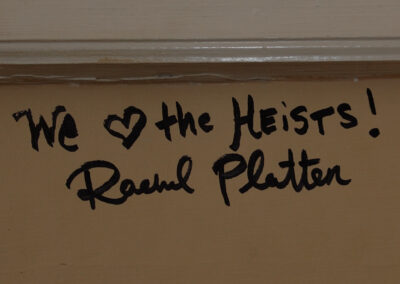 We ♡ the HEiSTS!
Rachel Platten